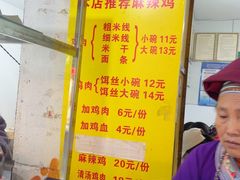 本店推荐麻辣鸡
粗米线
细米线 小碗 11元
米干 大碗 13元
面条
鸡肉 饵丝小碗 12元
饵丝大碗 14元
加鸡肉 6元/份
加鸡血 4元/份
麻辣鸡 20元/份
清汤鸡肉